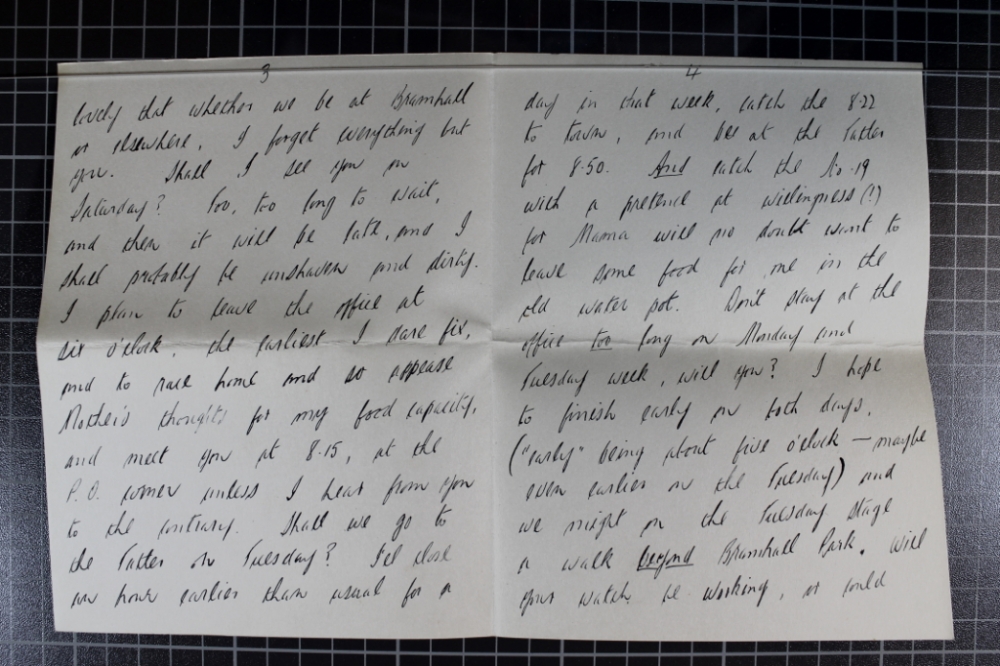 3
lovely that whether we be at Bramhall
or elsewhere, I forget everything but
you. Shall I see you on
Saturday? Too, too long to wait,
and then it will be late, and I
shall probably be unshaven and dirty.
I plan to leave the office at
six o'clock, the earliest I dare fix,
and to race home and so appease
Mother's thoughts for my food capacity,
and meet you at 8.15, at the
P.O. corner unless I hear from you
to the contrary. Shall we go to
the Tatler on Tuesday? I'll close
an hour earlier than usual for a
4
day in that week, catch the 8.22
to town, and be at the Tatler
for 8.50. And catch the 10.19
with a pretence at willingness (!)
for Mama will no doubt want to
leave some food for me in the
old water pot. Don't stay at the
office too long on Monday and
Tuesday week, will you? I hope
to finish early on both days,
("early" being about five o'clock — maybe
even earlier on the Tuesday) and
we might on the Tuesday stage
a walk beyond Bramhall Park. Will
your watch be working, or could